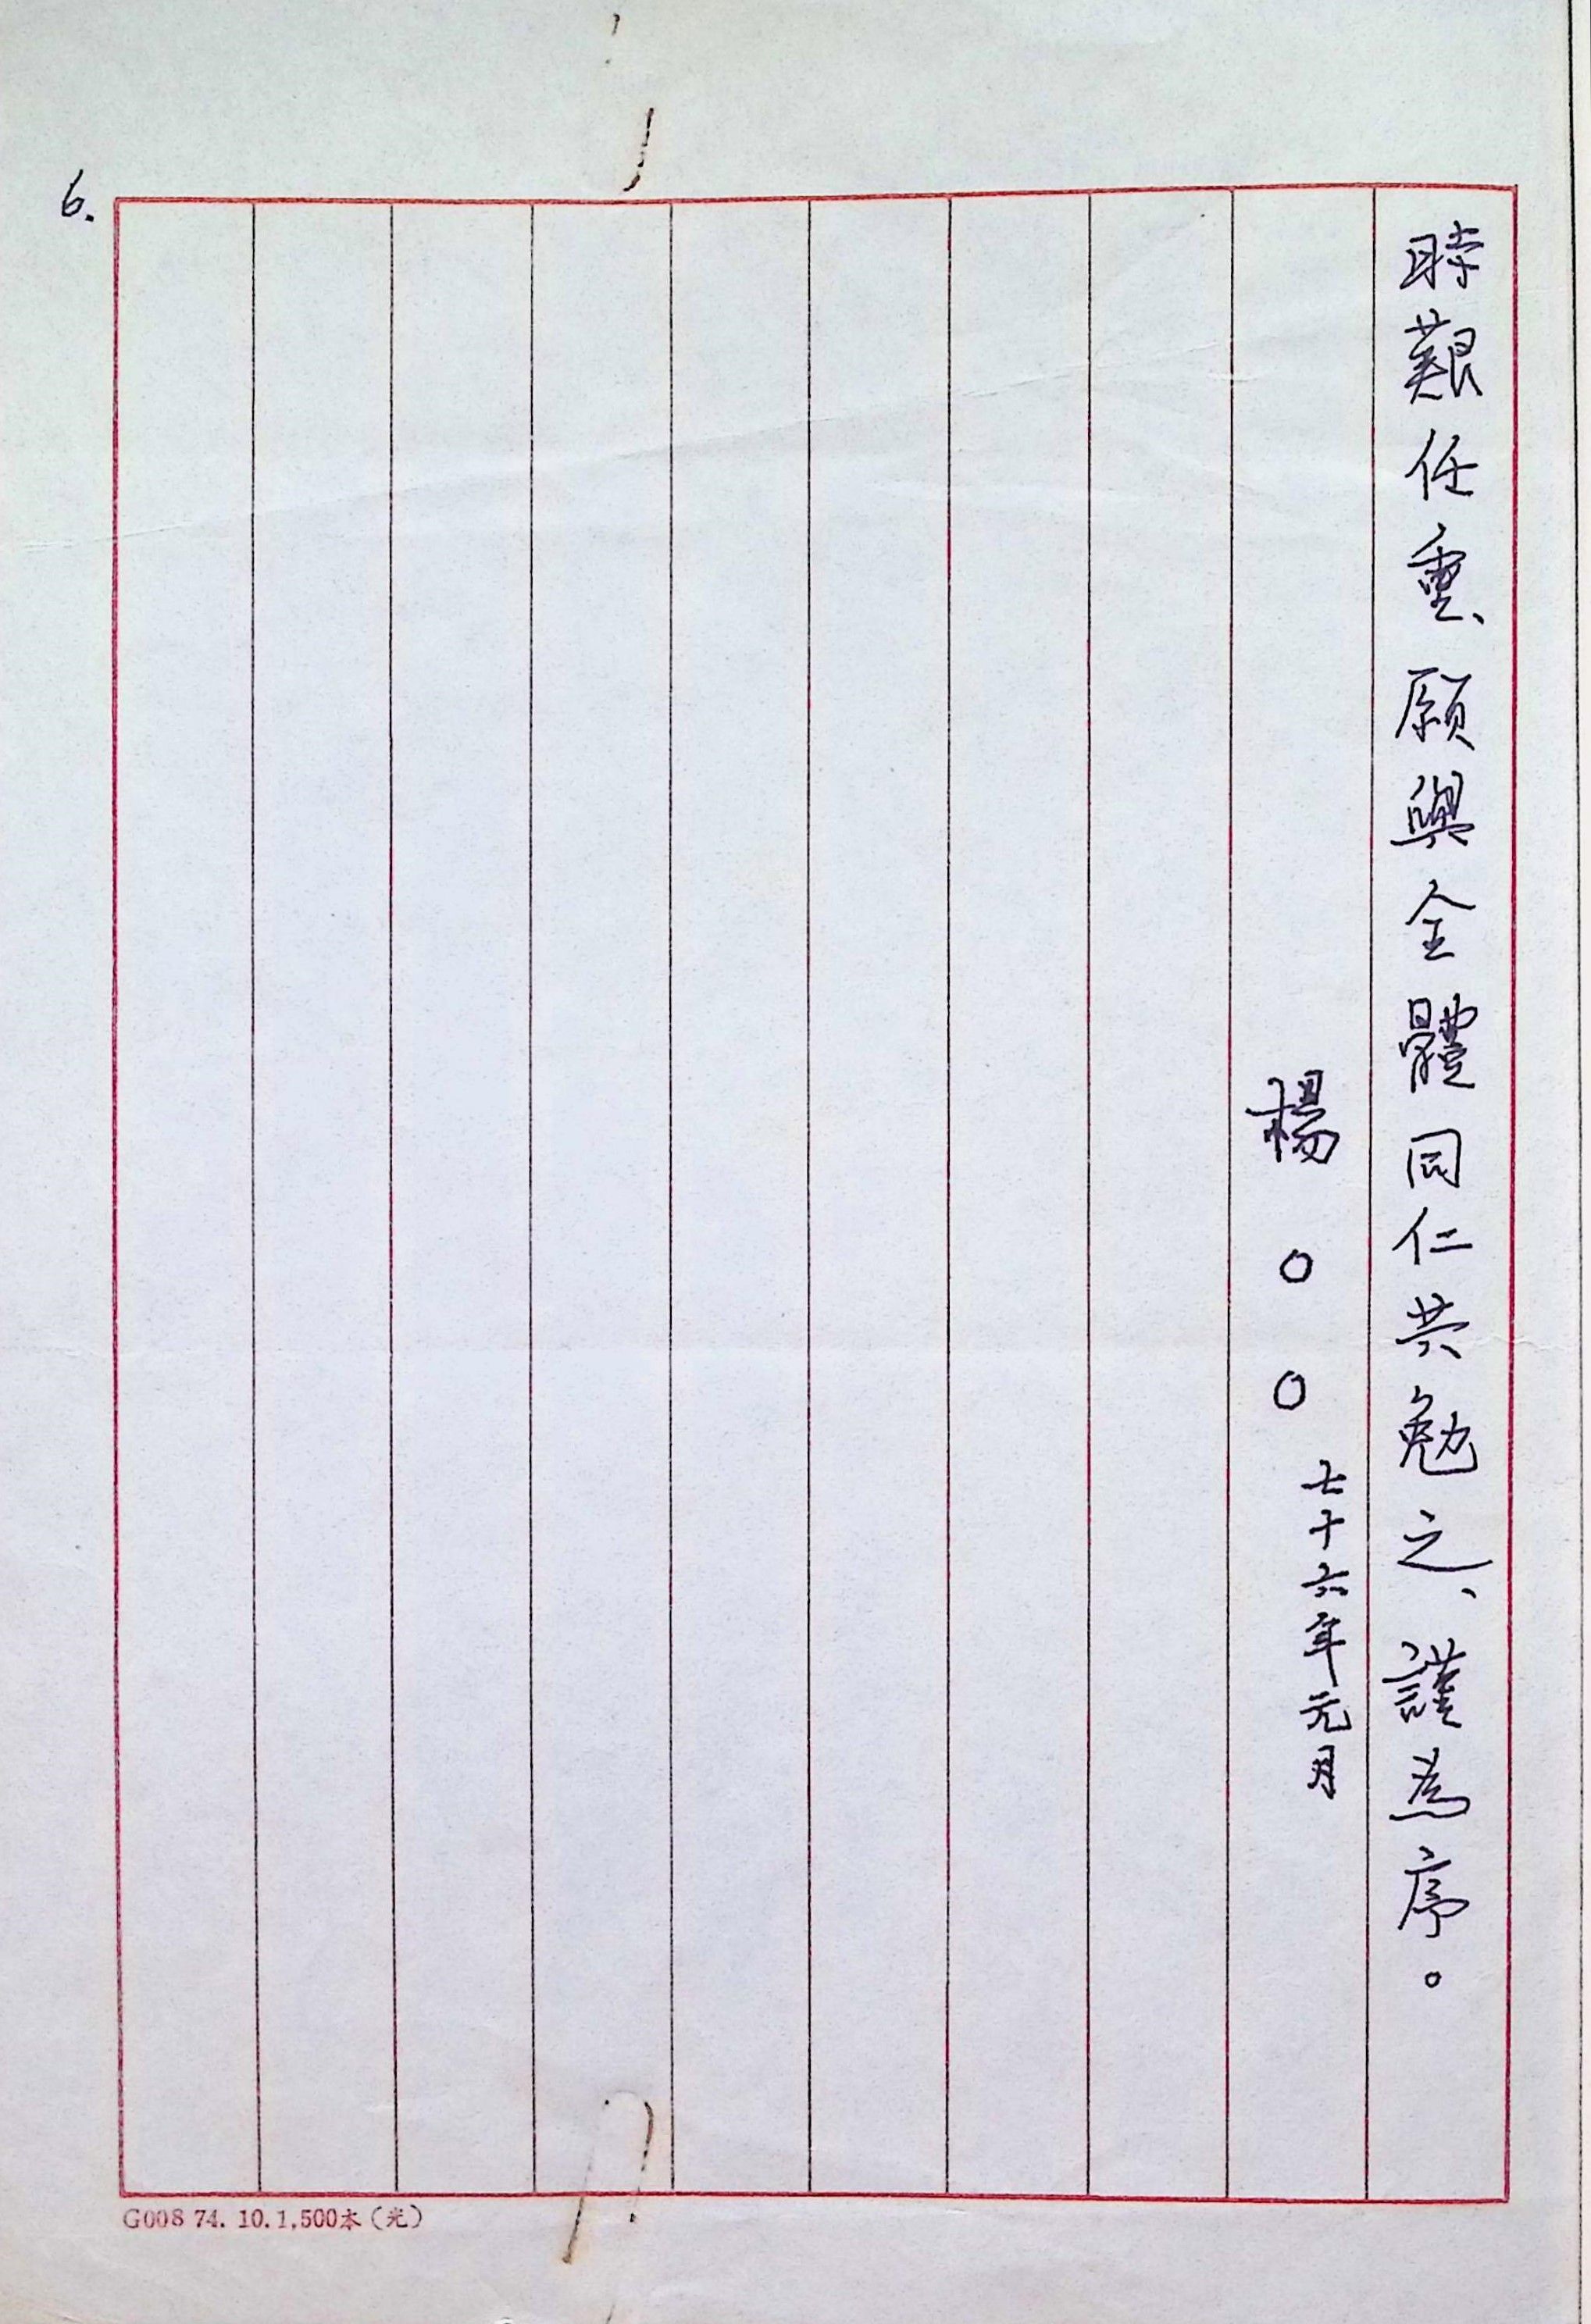 6.
時艱任重、願與全體同仁共勉之、謹為序。
楊○○
七十六年元月
G008 74. 10. 1,500本(光)